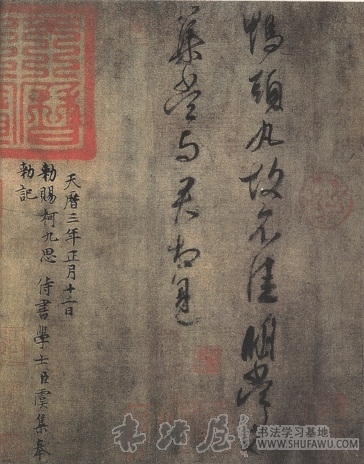 鸭头丸故不佳明当必
集当与君相见
天曆三年正月十二日
勑賜柯九思侍書學士臣虞集奉
勑記
书法学习基地
WWW.SHUFAWU.COM